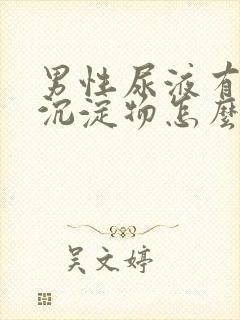 男性尿液有
沉淀物怎麼
吴文婷